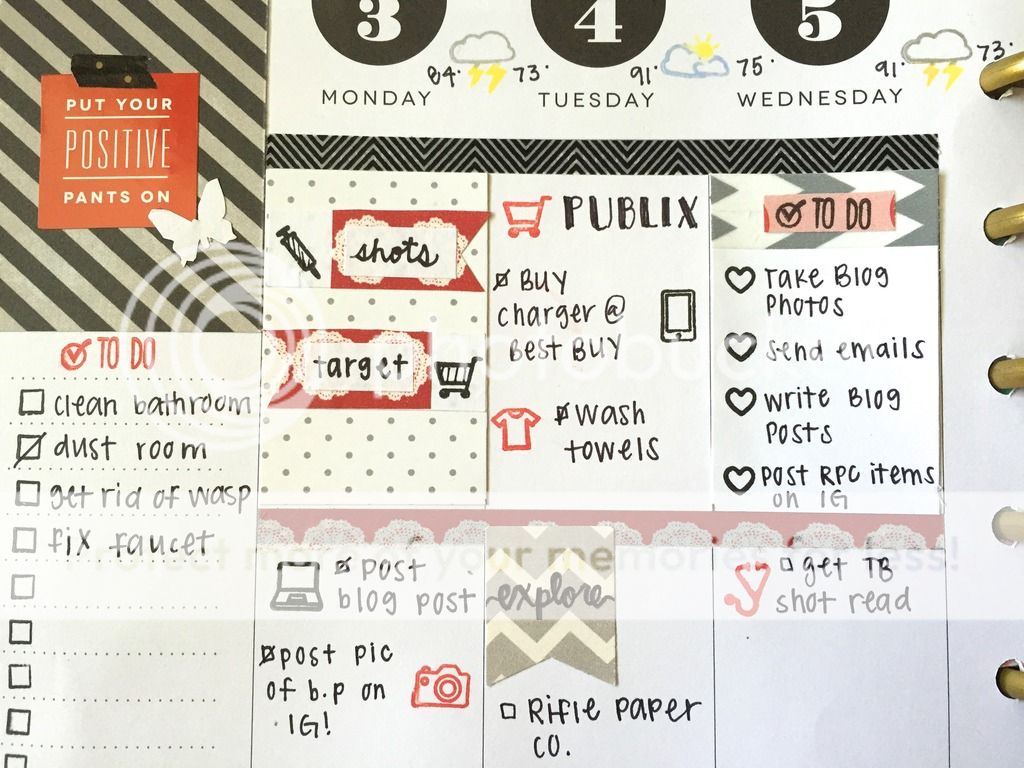 3
4
5
84° 73°
91° 75°
91° 73°
MONDAY
TUESDAY
WEDNESDAY
PUT YOUR
POSITIVE
PANTS ON
TO DO
clean bathroom
dust room
get rid of wasp
fix faucet
shots
target
PUBLIX
BUY
charger @
BEST BUY
Wash
towels
TO DO
Take Blog
Photos
send emails
write Blog
Posts
POST RPC items
on IG
post
blog post
post pic
of b.p on
IG!
explore
Rifle paper
co.
get TB
shot read
photobucket
Protect more of your memories for less!